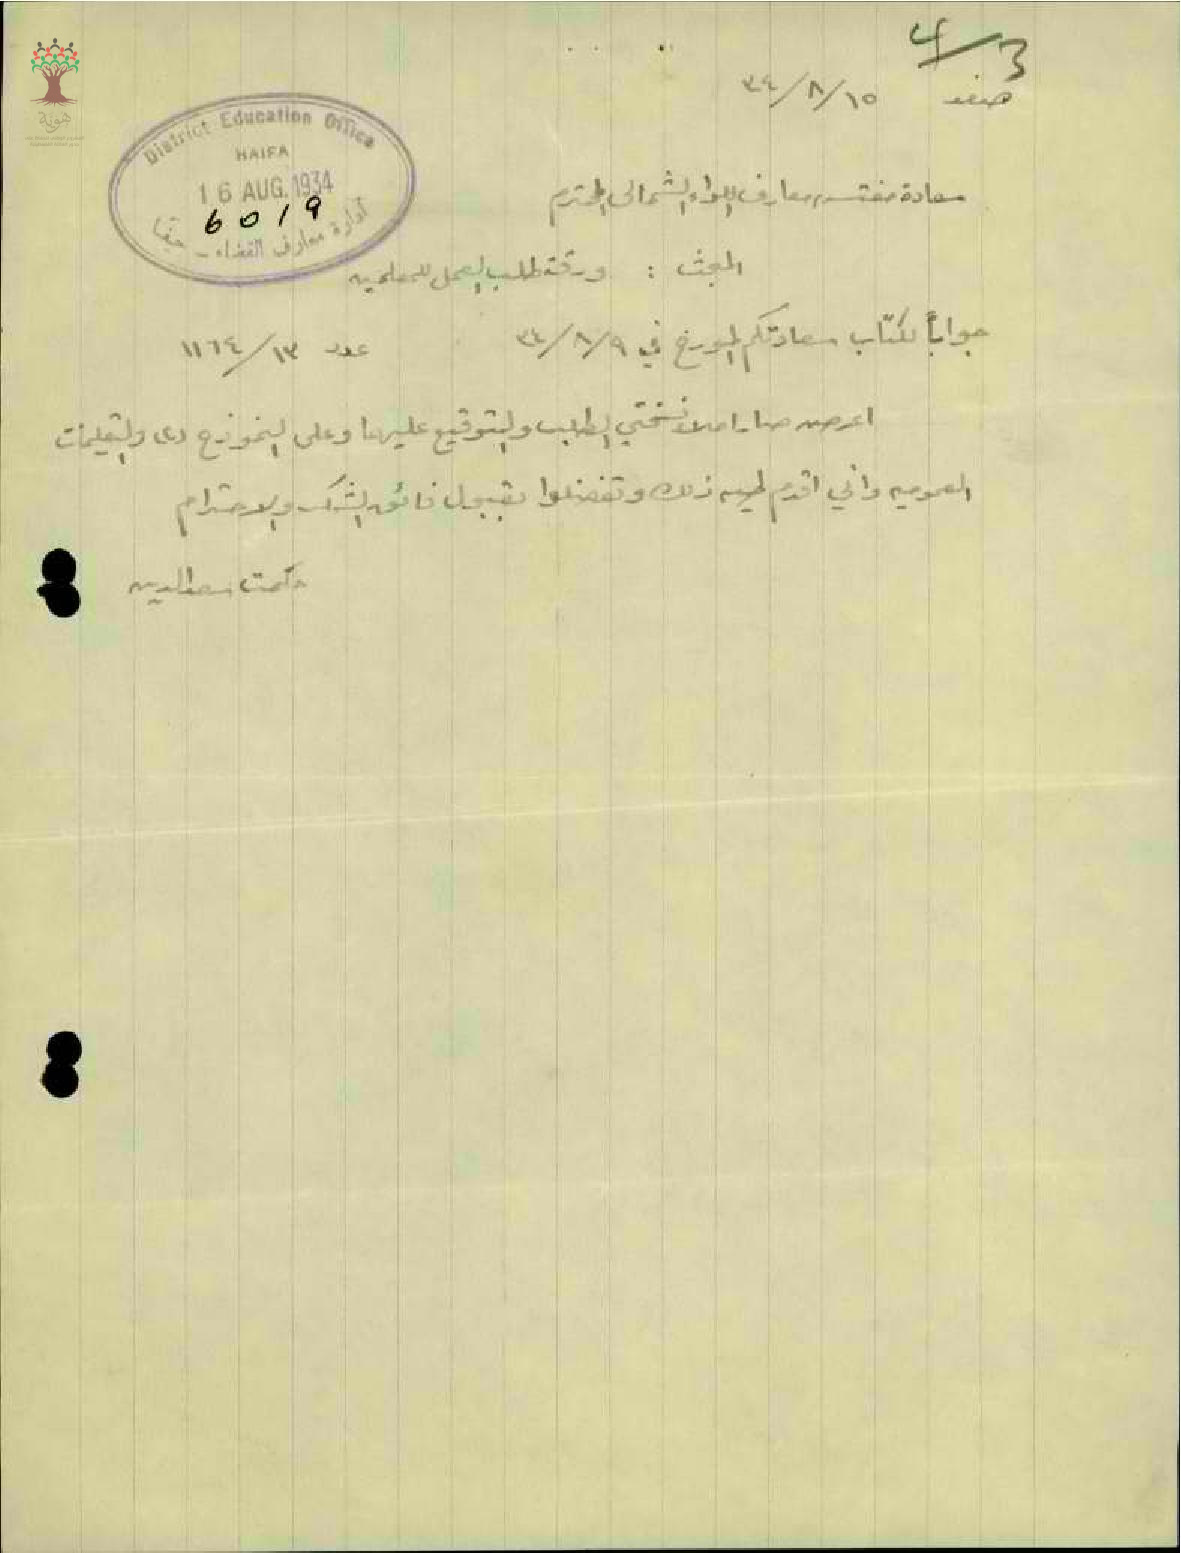 4/3
صفد ١٥/٨/٣٤
District Education Office
HAIFA
16 AUG. 1934
6019
ادارة معارف القضاء - حيفا
هوية
سعادة مفتش معارف اللواء الشمالي المحترم
المبحث : ورقة طلب العمل للمعلمين
جواباً لكتاب سعادتكم المؤرخ في ٩/٨/٣٤ عدد ١٣/١١٦٤
اعرض صار املاء نسختي الطلب والتوقيع عليها وعلى النموذج والتعليمات
العمومية واني اقدم طيه ذلك وتفضلوا بقبول فائق الشكر والاحترام
حكمت سعد الدين